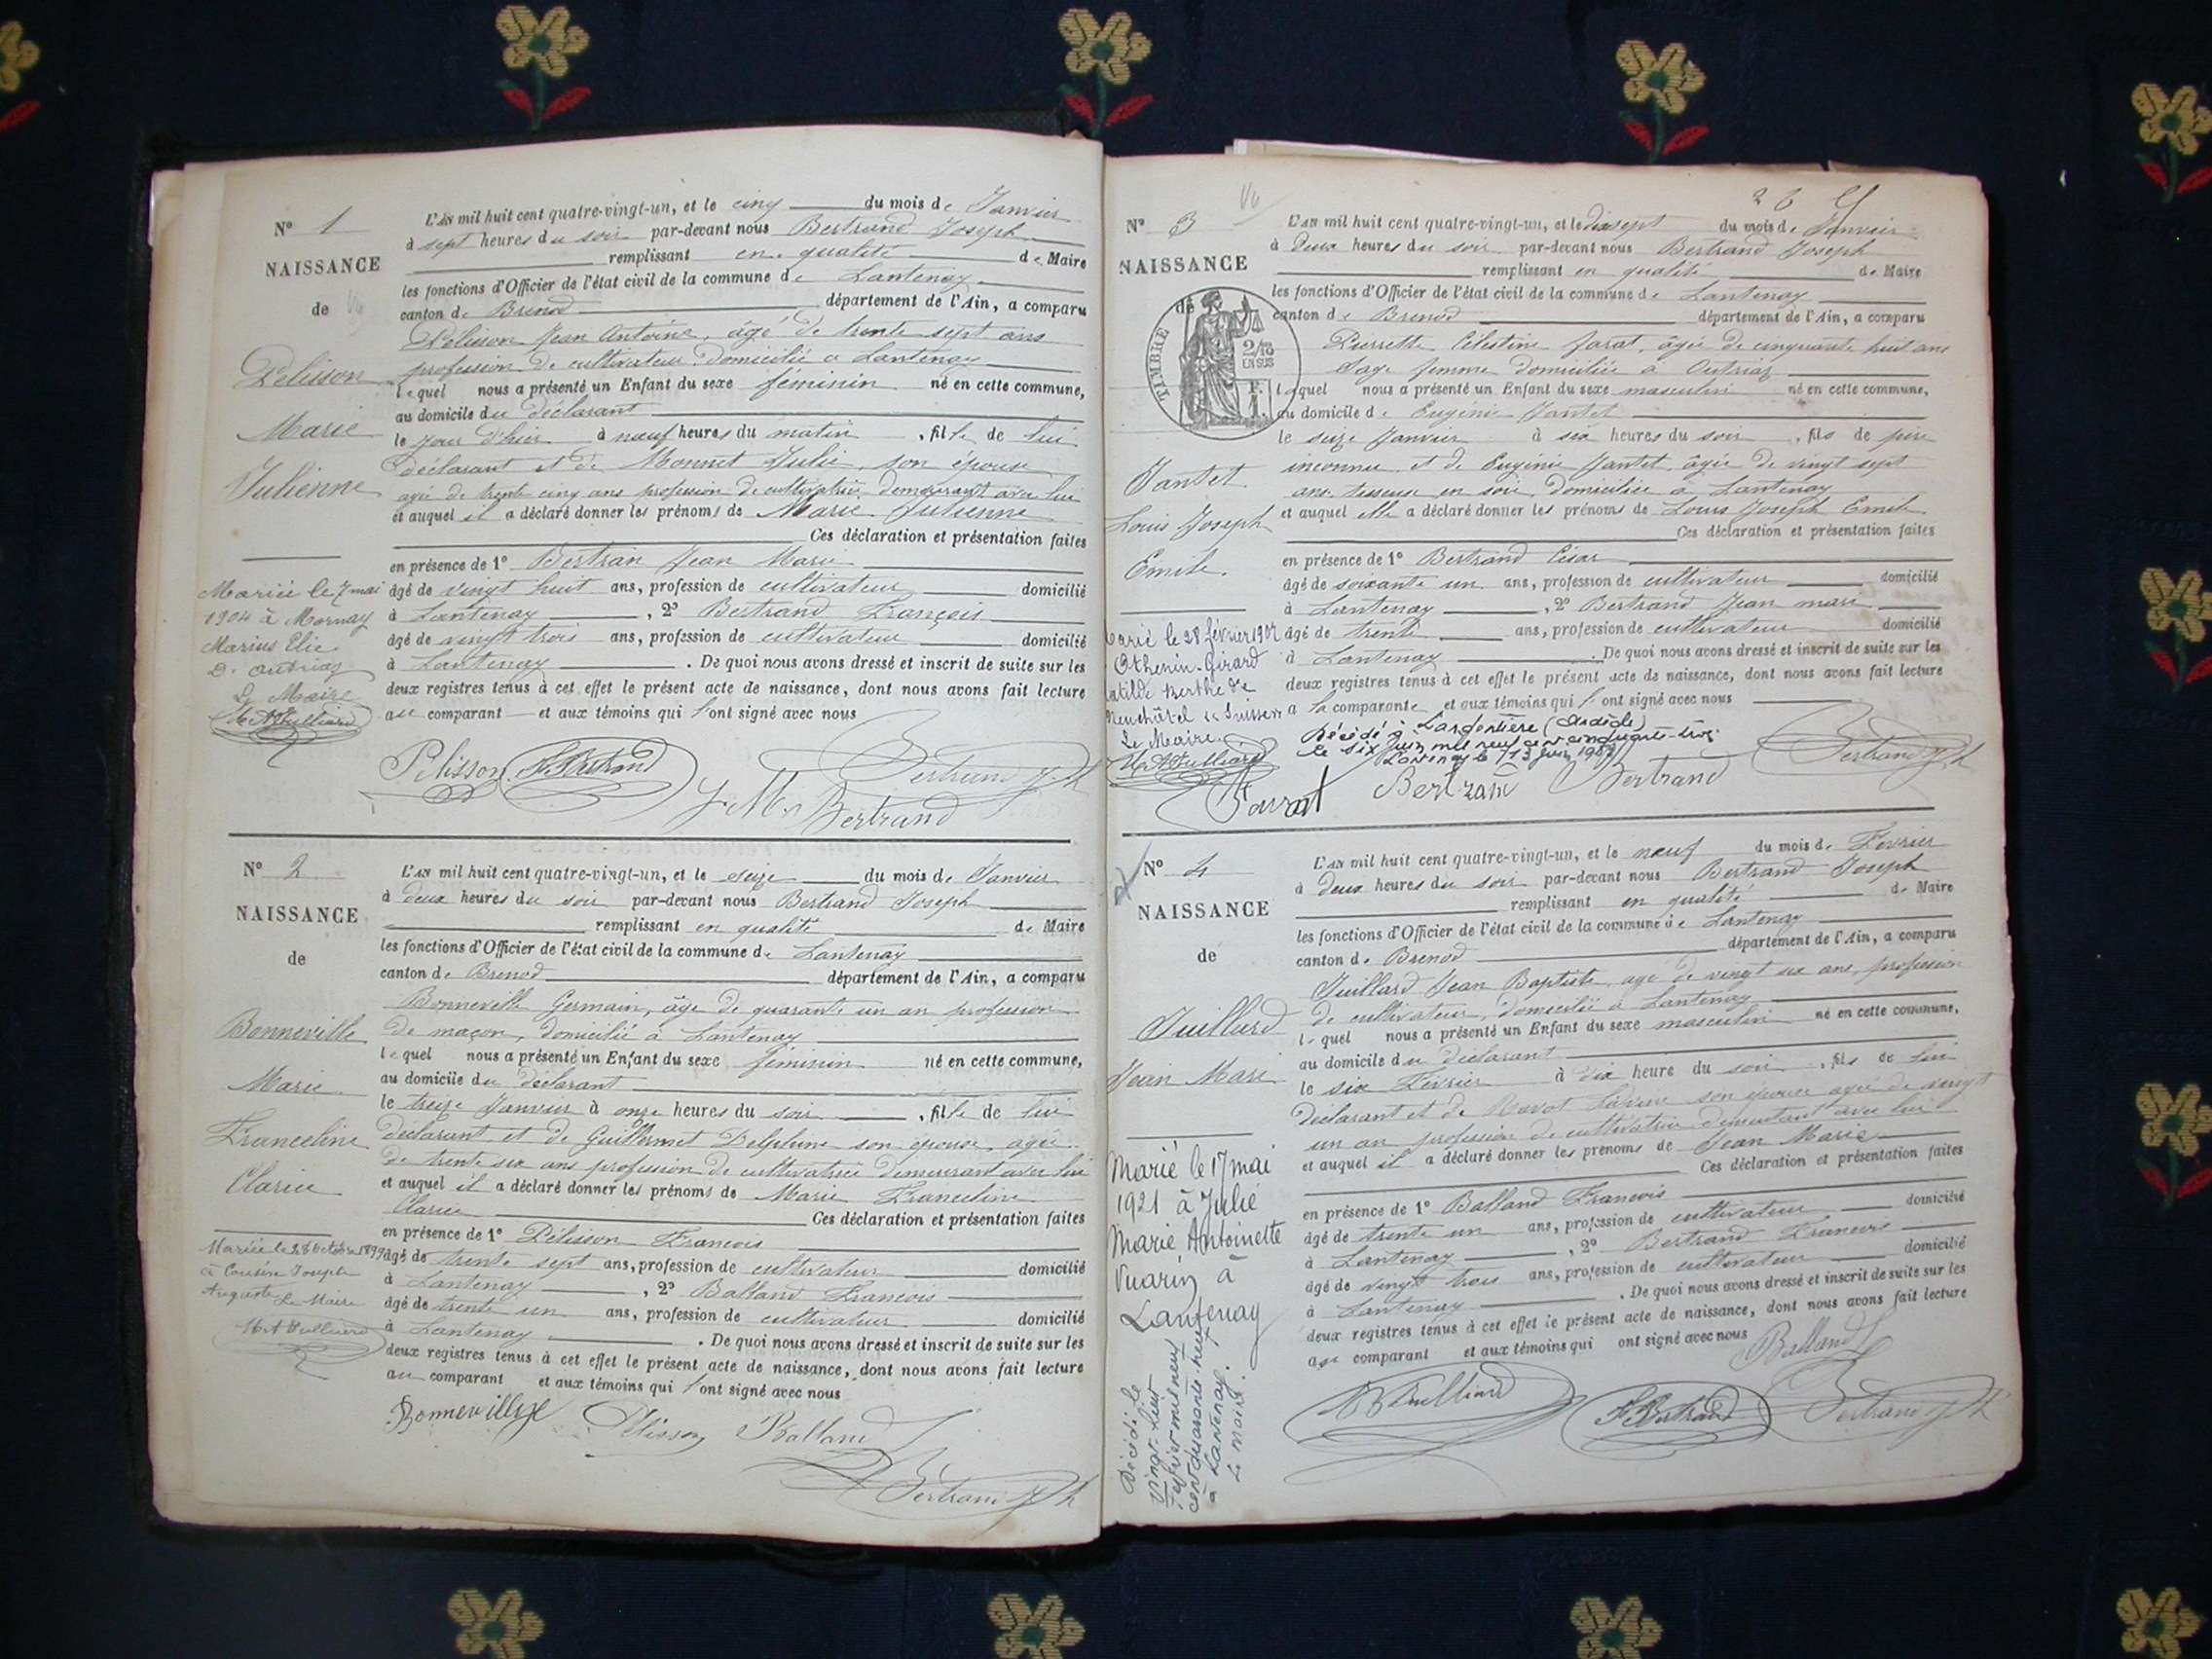 N° 1
NAISSANCE
de
Pélisson
Marie
Julienne
Mariée le 7 mai
1904 à Mornay
Marius Elie
D. Outriaz
Le Maire
L'AN mil huit cent quatre-vingt-un, et le cinq du mois de Janvier
à sept heures du soir par-devant nous Bertrand Joseph
remplissant en qualité de Maire
les fonctions d'Officier de l'état civil de la commune de Lantenay
canton de Brenod département de l'Ain, a comparu
Pélisson Jean Antoine, âgé de trente sept ans
profession de cultivateur domicilié à Lantenay
lequel nous a présenté un Enfant du sexe féminin né en cette commune,
au domicile du déclarant
le jour d'hier à neuf heures du matin, fille de lui
déclarant et de Monnet Julie, son épouse
agée de trente cinq ans profession de cultivatrice, demeurant avec lui
et auquel il a déclaré donner les prénoms de Marie Julienne
Ces déclaration et présentation faites
en présence de 1° Bertran Jean Marie
âgé de vingt huit ans, profession de cultivateur domicilié
à Lantenay, 2° Bertrand François
âgé de vingt trois ans, profession de cultivateur domicilié
à Lantenay. De quoi nous avons dressé et inscrit de suite sur les
deux registres tenus à cet effet le présent acte de naissance, dont nous avons fait lecture
au comparant et aux témoins qui l'ont signé avec nous
Pélisson F. Bertrand Bertrand Jh
J. M. Bertrand
N° 2
NAISSANCE
de
Bonneville
Marie
Franceline
Clarice
Mariée le 28 Octobre 1899
à Cousin Joseph
Auguste Le Maire
L'AN mil huit cent quatre-vingt-un, et le seize du mois de Janvier
à deux heures du soir par-devant nous Bertrand Joseph
remplissant en qualité de Maire
les fonctions d'Officier de l'état civil de la commune de Lantenay
canton de Brenod département de l'Ain, a comparu
Bonneville Germain, âge de quarante un an profession
de maçon, domicilié à Lantenay
lequel nous a présenté un Enfant du sexe féminin né en cette commune,
au domicile du déclarant
le treize Janvier à onze heures du soir, fille de lui
déclarant et de Guillermet Delphine son épouse, agée
de trente six ans profession de cultivatrice demeurant avec lui
et auquel il a déclaré donner les prénoms de Marie Franceline
Clarice Ces déclaration et présentation faites
en présence de 1° Pélisson François
âgé de trente sept ans, profession de cultivateur domicilié
à Lantenay, 2° Balland François
âgé de trente un ans, profession de cultivateur domicilié
à Lantenay. De quoi nous avons dressé et inscrit de suite sur les
deux registres tenus à cet effet le présent acte de naissance, dont nous avons fait lecture
au comparant et aux témoins qui l'ont signé avec nous
Bonneville Pélisson Balland
Bertrand Jh
N° 3
NAISSANCE
de
TIMBRE
2/10
EN SUS
Jantet
Louis Joseph
Emile
Marié le 28 février 1907
Othenin-Girard
Matilde Berthe de
Neuchâtel Suisse
Le Maire
L'AN mil huit cent quatre-vingt-un, et le dixsept du mois de Janvier
à deux heures du soir par-devant nous Bertrand Joseph
remplissant en qualité de Maire
les fonctions d'Officier de l'état civil de la commune de Lantenay
canton de Brenod département de l'Ain, a comparu
Pierrette Célestine Favrat, âgée de cinquante huit ans
sage femme domiciliée à Outriaz
lequel nous a présenté un Enfant du sexe masculin né en cette commune,
au domicile de Eugénie Jantet
le seize Janvier à six heures du soir, fils de père
inconnu et de Eugénie Jantet, âgée de vingt sept
ans tisseuse en soie, domiciliée à Lantenay
et auquel elle a déclaré donner les prénoms de Louis Joseph Emile
Ces déclaration et présentation faites
en présence de 1° Bertrand César
âgé de soixante un ans, profession de cultivateur domicilié
à Lantenay, 2° Bertrand Jean marie
âgé de trente ans, profession de cultivateur domicilié
à Lantenay. De quoi nous avons dressé et inscrit de suite sur les
deux registres tenus à cet effet le présent acte de naissance, dont nous avons fait lecture
à la comparante et aux témoins qui l'ont signé avec nous
Décédé à Largentière (Ardèche)
le six Juin mil neuf cent cinquante-trois
Lantenay le 13 Juin 1953
Favrat Bertrand Bertrand Bertrand Jh
N° 4
NAISSANCE
de
Juillard
Jean Marie
Marié le 17 mai
1921 à Julie
Marie Antoinette
Vuarin à
Lantenay
Décédé le
vingt-huit
février mil neuf
à Lantenay.
Le Maire.
L'AN mil huit cent quatre-vingt-un, et le neuf du mois de Février
à deux heures du soir par-devant nous Bertrand Joseph
remplissant en qualité de Maire
les fonctions d'Officier de l'état civil de la commune de Lantenay
canton de Brenod département de l'Ain, a comparu
Juillard Jean Baptiste, agé de vingt six ans, profession
de cultivateur, domicilié à Lantenay
lequel nous a présenté un Enfant du sexe masculin né en cette commune,
au domicile du déclarant
le six Février à dix heure du soir, fils de lui
déclarant et de Ravot son épouse agée de vingt
un an profession de cultivatrice demeurant avec lui
et auquel il a déclaré donner les prénoms de Jean Marie
Ces déclaration et présentation faites
en présence de 1° Balland François
âgé de trente un ans, profession de cultivateur domicilié
à Lantenay, 2° Bertrand François
âgé de vingt trois ans, profession de cultivateur domicilié
à Lantenay. De quoi nous avons dressé et inscrit de suite sur les
deux registres tenus à cet effet le présent acte de naissance, dont nous avons fait lecture
au comparant et aux témoins qui ont signé avec nous Balland
F. Bertrand Bertrand Jh